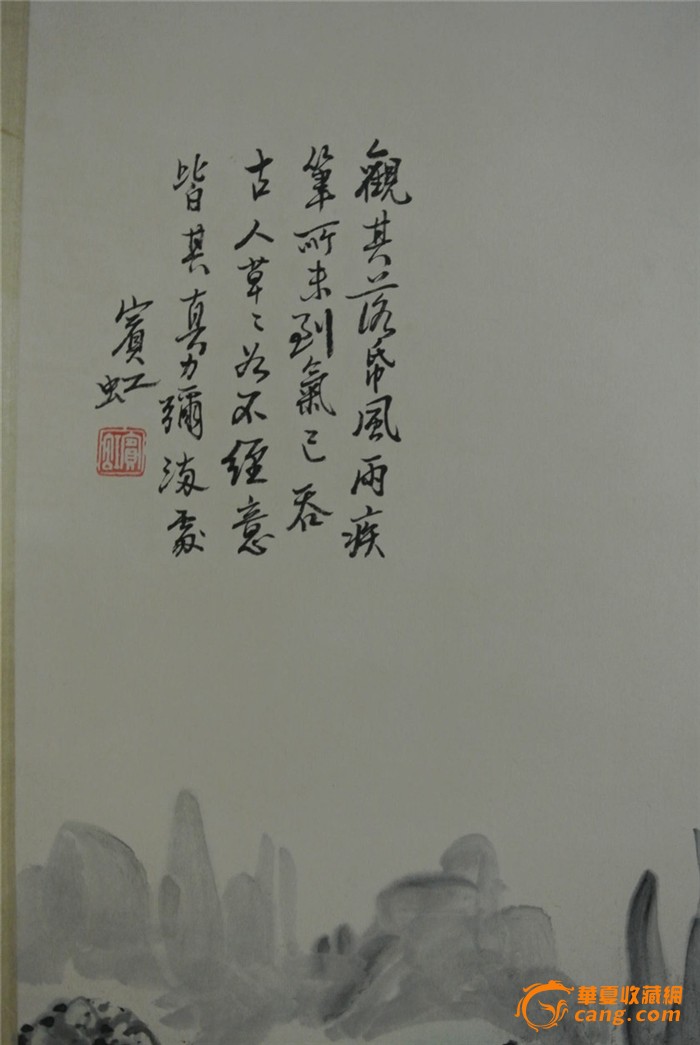 觀其落帋風雨疾
筆所未到氣已吞
古人草〻若不經意
皆其真力彌滿處
賓虹
賓虹
華夏收藏網
cang.com